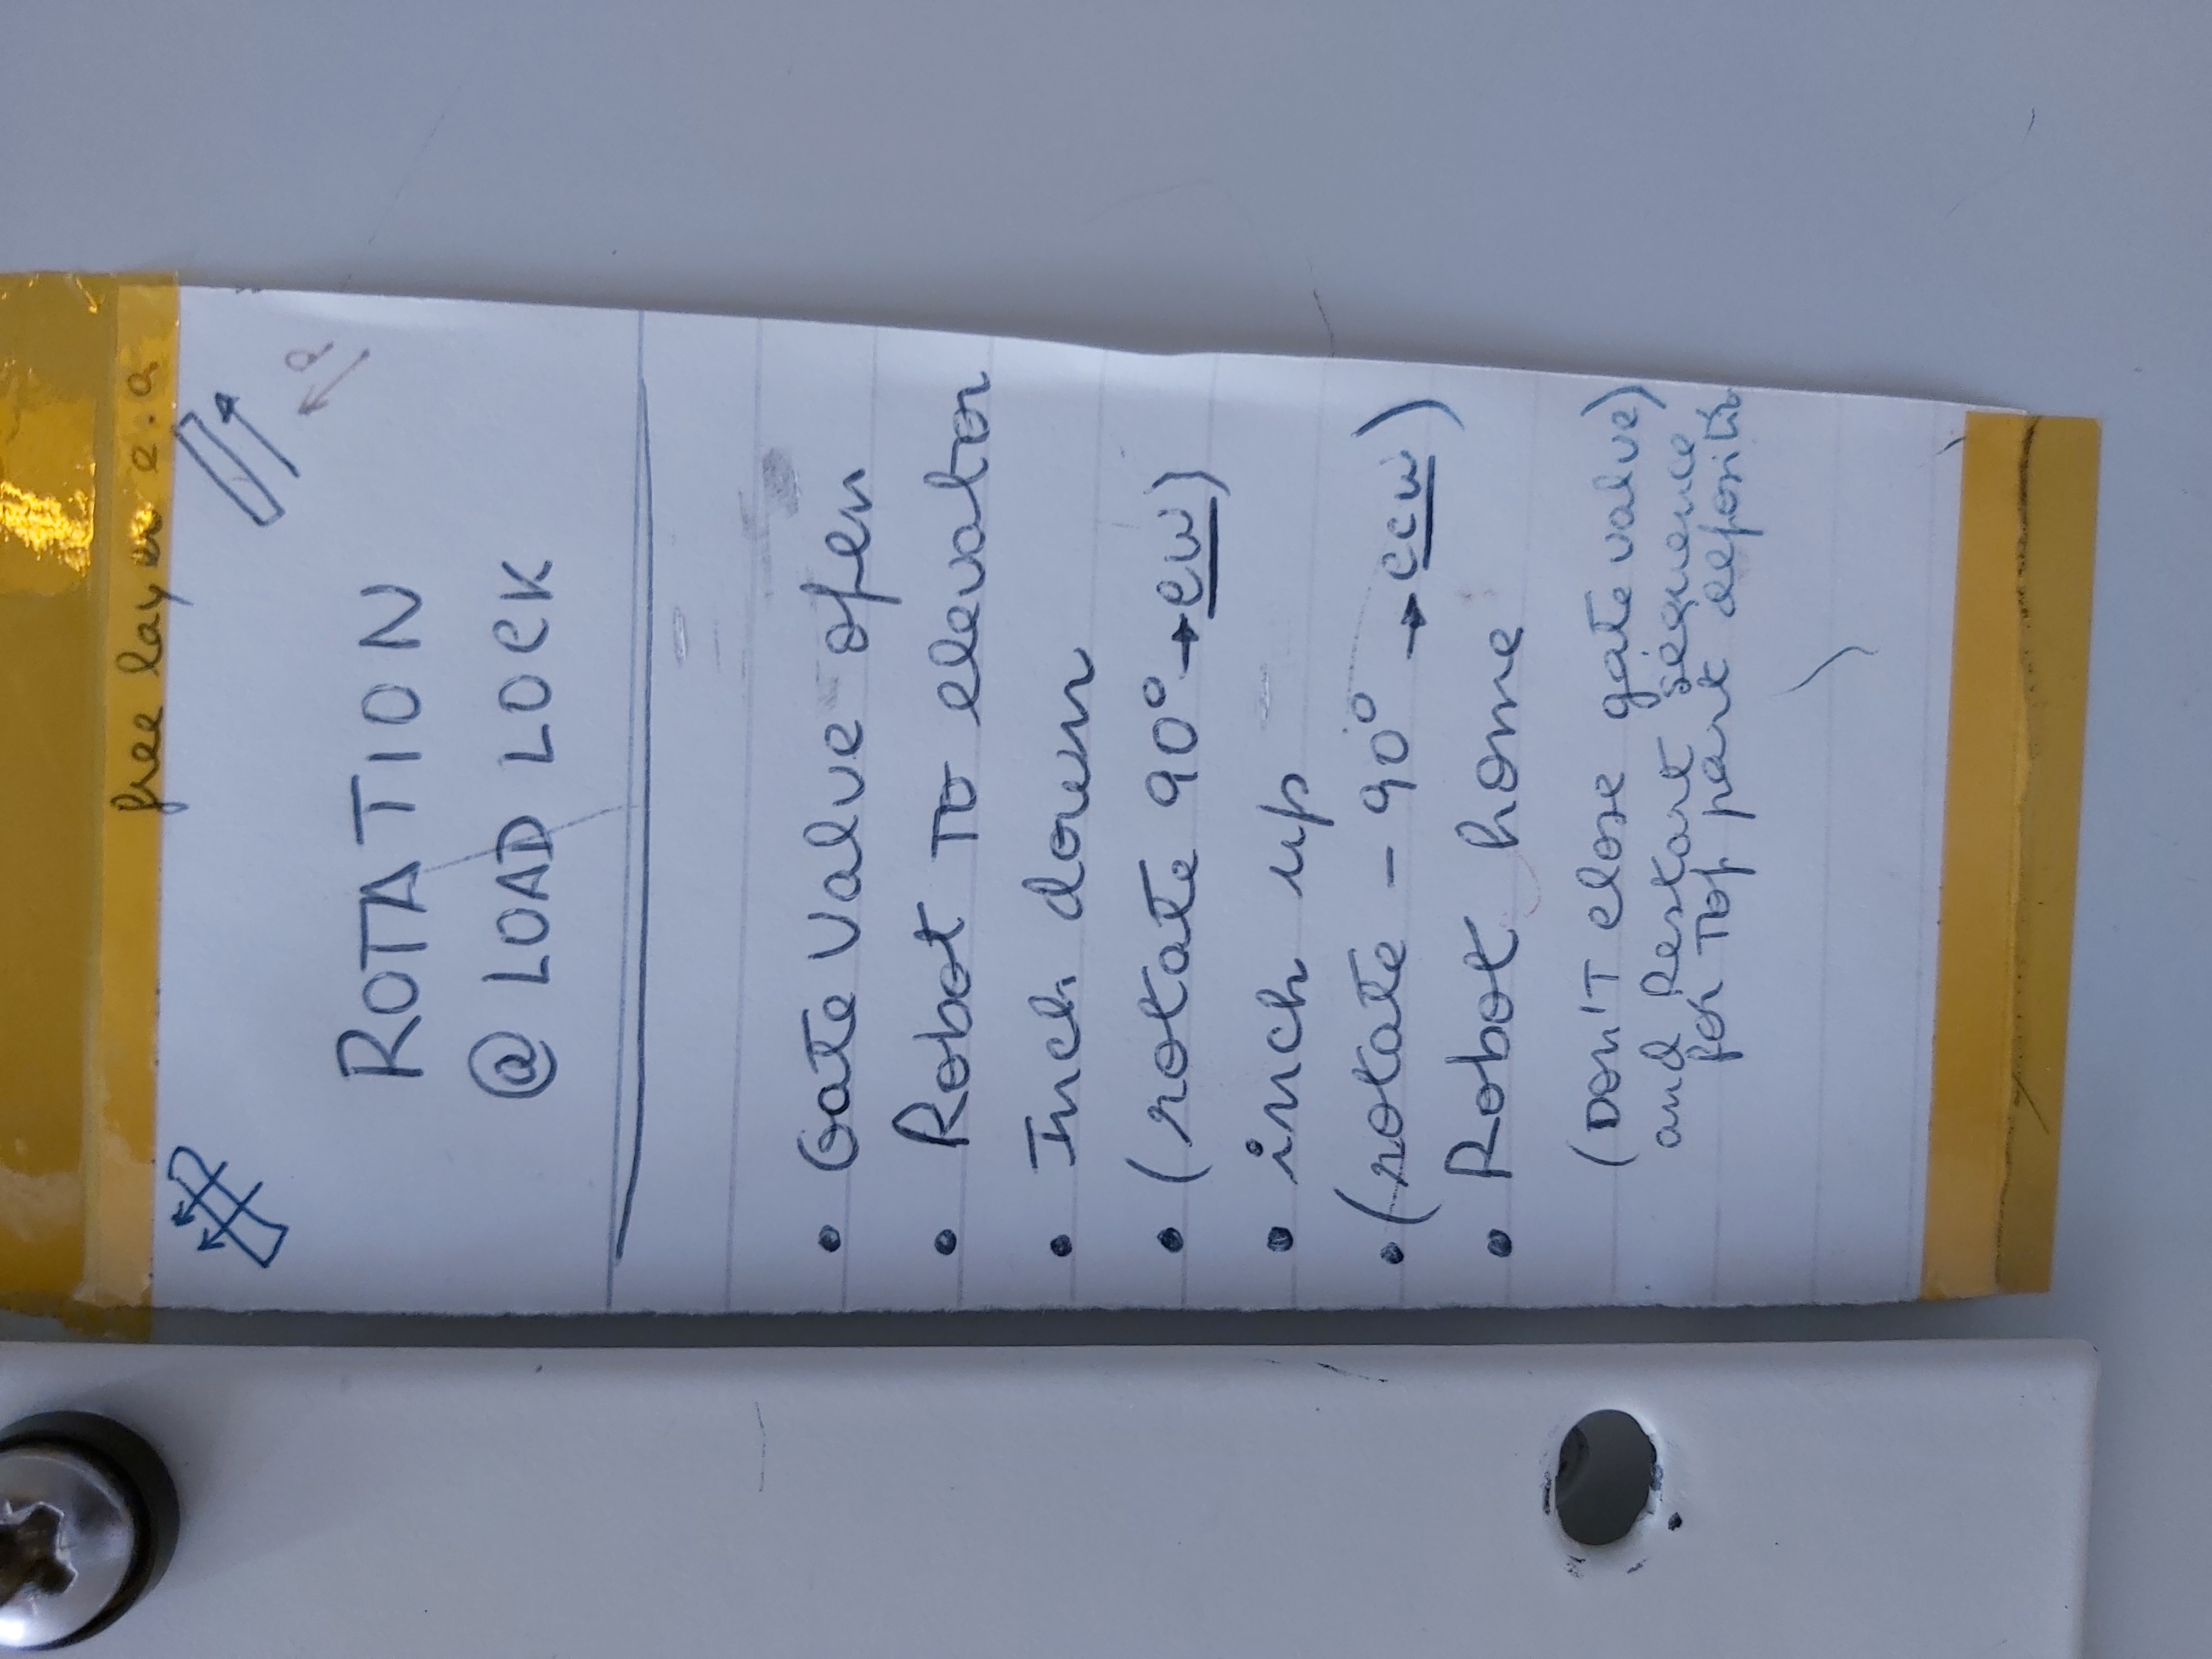 free layer e.a
P
ROTATION
@ LOAD LOCK
• Gate Valve open
• Robot to elevator
• Inch down
• (rotate 90° → cw)
• inch up
• (rotate - 90° → ccw)
• Robot home
(Don't close gate valve)
and Restart sequence
for Top part depositio